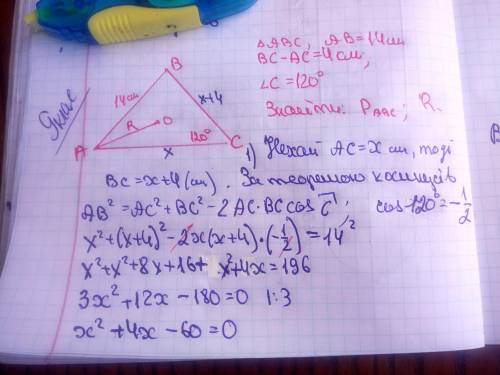 △ABC, AB=14см
BC-AC=4см,
∠C=120°
Знайти: P△ABC; R.
9клас
B
14см
x+4
R
O
120°
A
C
x
1) Нехай AC=x см, тоді
BC=x+4(см). За теоремою косинусів
AB²=AC²+BC²-2AC·BC cos C; cos 120°=-1/2
x²+(x+4)²-2x(x+4)·(-1/2)=14²
x²+x²+8x+16+x²+4x=196
3x²+12x-180=0 |:3
x²+4x-60=0